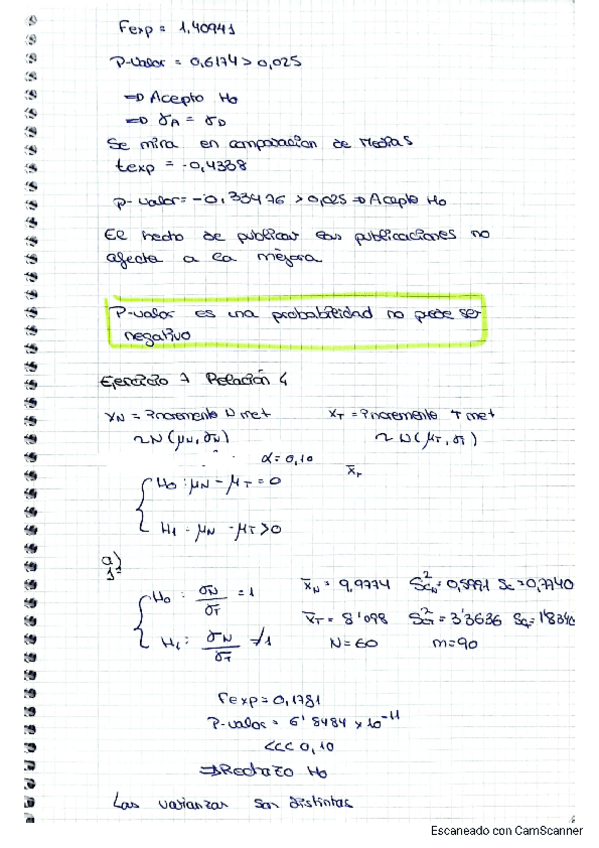 Fexp = 1,40941
P-valor = 0,6174 > 0,025
⇒ Acepto H0
⇒ σA = σD
Se mira en comparacion de Medias
texp = -0,4338
p-valor = -0,33476 > 0,025 ⇒ Acepto H0
El hecho de publicar las publicaciones no
afecta a la mejora
P-valor es una probabilidad no puede ser
negativo
Ejercicio 7 Relación 4
XN = Incremento N met XT = Incremento T met
~N(μN, σN) ~N(μT, σT)
α = 0,10 x̄T
H0: μN - μT = 0
H1 - μN - μT > 0
a)
1º
H0: σN/σT = 1 x̄N = 9,9774 S²CN = 0,5991 Sc = 0,7740
x̄T = 8'098 S²CT = 3'3636 ScT = 1'8340
H1: σN/σT ≠ 1 N = 60 m = 90
Fexp = 0,1781
P-valor = 6'8484 x 10⁻¹¹
<<< 0,10
⇒ Rechazo H0
Las varianzas son distintas
Escaneado con CamScanner